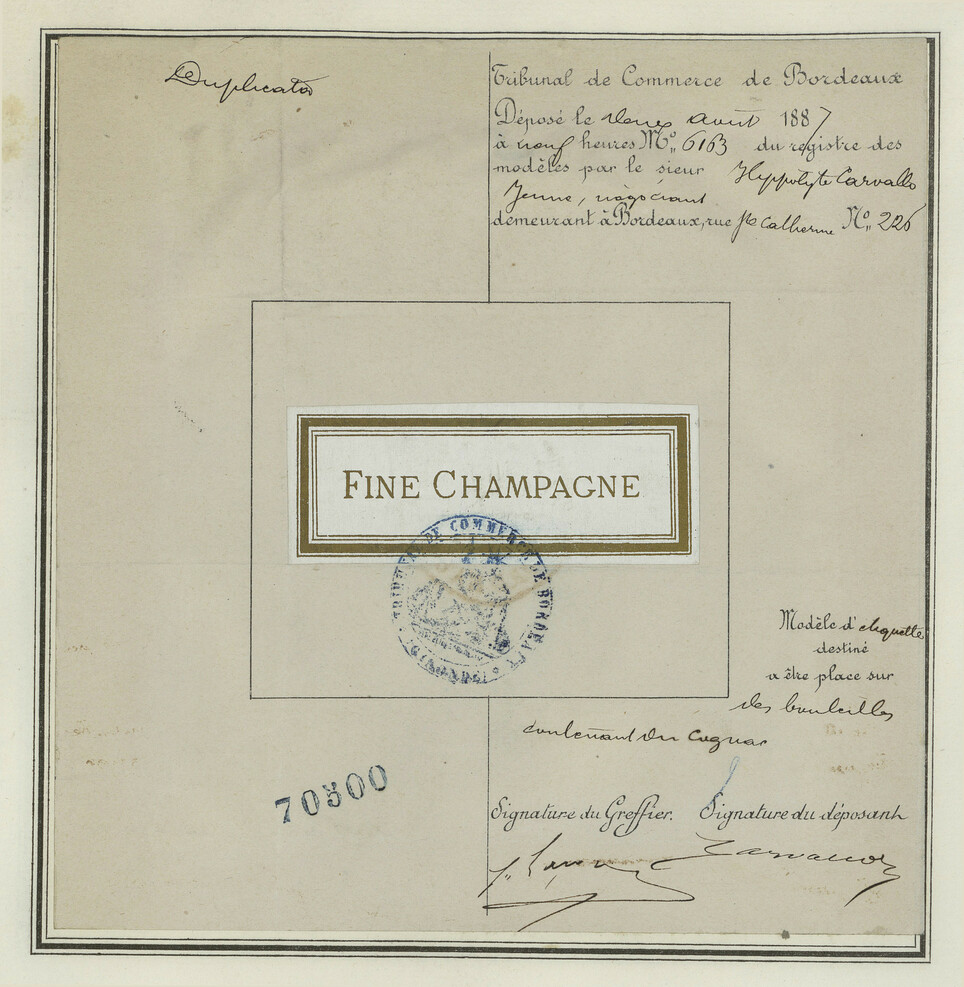 Duplicata
Tribunal de Commerce de Bordeaux
Déposé le onze août 1887
à neuf heures N° 6163 du registre des
modèles par le sieur Hyppolyte Carvallo
Jeune, négociant
demeurant à Bordeaux, rue Ste Catherine N° 226
FINE CHAMPAGNE
TRIBUNAL DE COMMERCE DE BORDEAUX
(GIRONDE)
Modèle d'etiquette
destiné
a être place sur
des bouteilles
contenant du Cognac
70500
Signature du Greffier. Signature du déposant
Carvallo